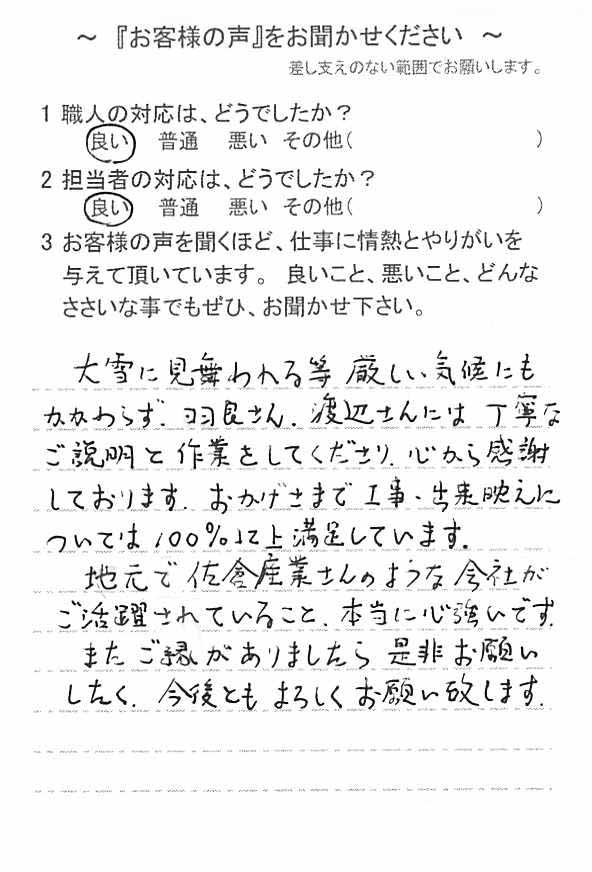 ~ 『お客様の声』をお聞かせください ~
差し支えのない範囲でお願いします。
1 職人の対応は、どうでしたか？
良い 普通 悪い その他( )
2 担当者の対応は、どうでしたか？
良い 普通 悪い その他( )
3 お客様の声を聞くほど、仕事に情熱とやりがいを
与えて頂いています。 良いこと、悪いこと、どんな
ささいな事でもぜひ、お聞かせ下さい。
大雪に見舞われる等 厳しい気候にも
かかわらず、羽良さん、渡辺さんには 丁寧な
ご説明と作業をしてくださり、心から感謝
しております。おかげさまで工事・出来映えに
ついては100%以上満足しています。
地元で佐倉産業さんのような会社が
ご活躍されていること、本当に心強いです。
またご縁がありましたら是非お願い
したく、今後ともよろしくお願い致します。